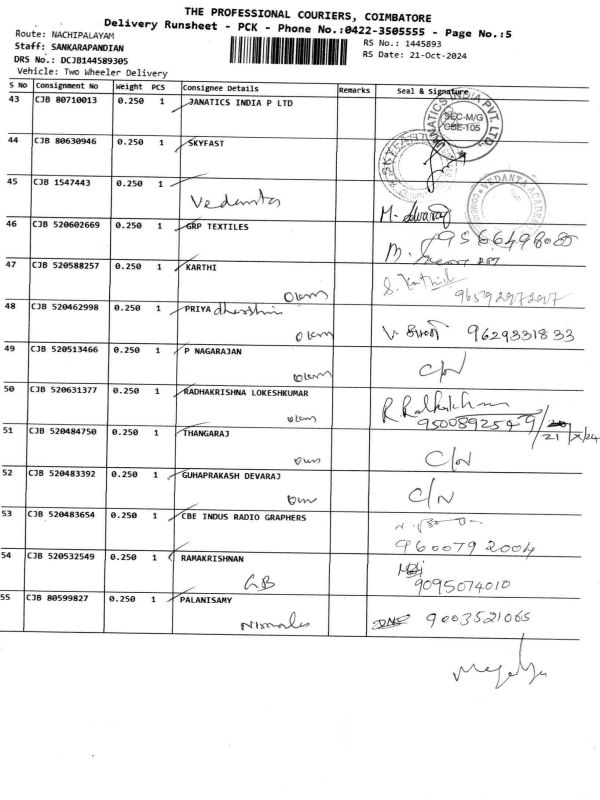 THE PROFESSIONAL COURIERS, COIMBATORE
Delivery Runsheet - PCK - Phone No.:0422-3505555 - Page No.:5
Route: NACHIPALAYAM
RS No.: 1445893
Staff: SANKARAPANDIAN
RS Date: 21-Oct-2024
DRS No.: DCJB144589305
Vehicle: Two Wheeler Delivery
S No Consignment No Weight PCS Consignee Details Remarks Seal & Signature
43 CJB 80710013 0.250 1 JANATICS INDIA P LTD
JANATICS INDIA PVT. LTD.
SEC-M/G
CBE-105
44 CJB 80630946 0.250 1 SKYFAST
45 CJB 1547443 0.250 1
Vedanta
VEDANTA ACADEMY
46 CJB 520602669 0.250 1 GRP TEXTILES
9566498085
47 CJB 520588257 0.250 1 KARTHI
S. Karthick
9659229729
48 CJB 520462998 0.250 1 PRIYA dharshini
9629331833
49 CJB 520513466 0.250 1 P NAGARAJAN
C/N
50 CJB 520631377 0.250 1 RADHAKRISHNA LOKESHKUMAR
R. Radhakrishnan
21/X/24
51 CJB 520484750 0.250 1 THANGARAJ
C/N
52 CJB 520483392 0.250 1 GUHAPRAKASH DEVARAJ
C/N
53 CJB 520483654 0.250 1 CBE INDUS RADIO GRAPHERS
9600792004
54 CJB 520532549 0.250 1 RAMAKRISHNAN
GB
9095074010
55 CJB 80599827 0.250 1 PALANISAMY
9003521065